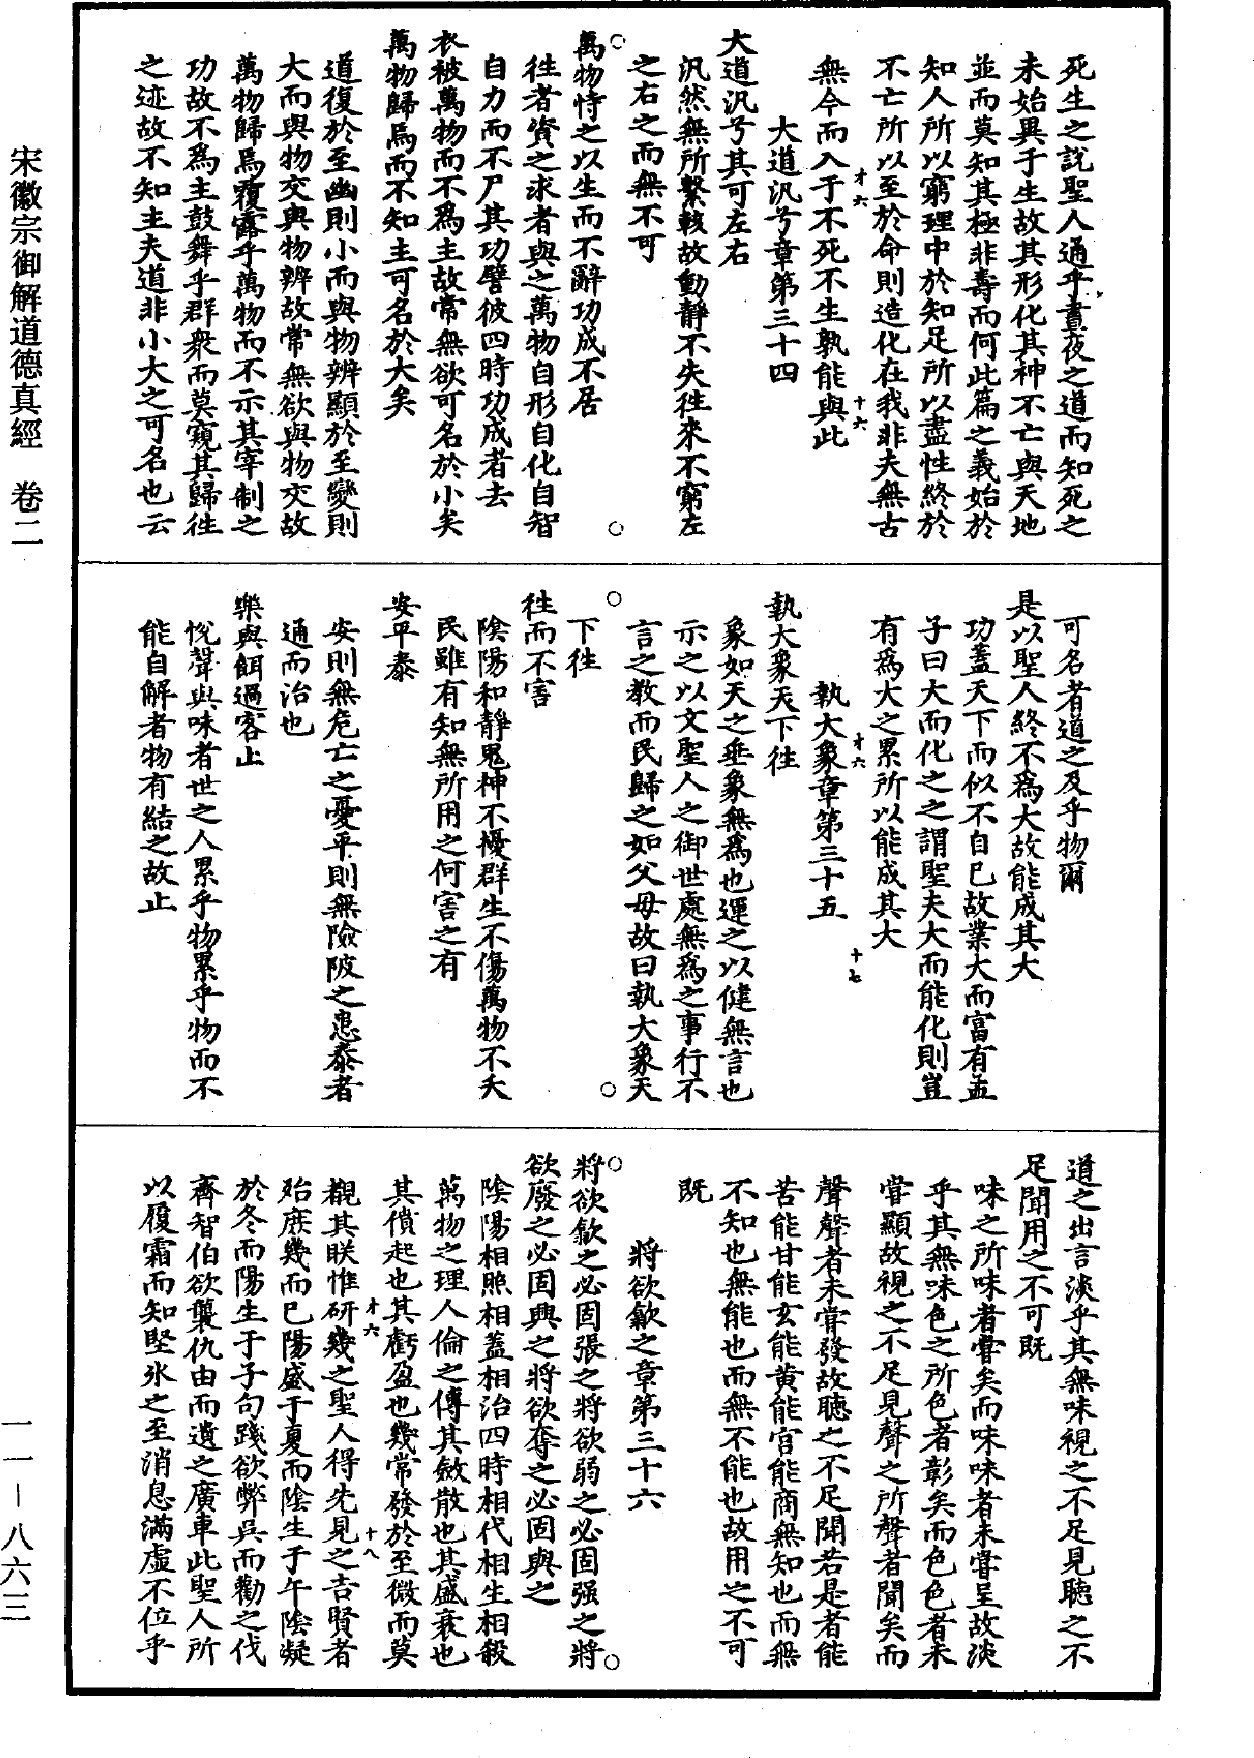 宋徽宗御解道德真經　卷二
死生之說聖人通乎晝夜之道而知死之
未始異于生故其形化其神不亡與天地
並而莫知其極非壽而何此篇之義始於
知人所以窮理中於知足所以盡性終於
不亡所以至於命則造化在我非夫無古
無今而入于不死不生孰能與此
才六
十六
大道汎兮章第三十四
大道汎兮其可左右
汎然無所繫輆故動靜不失徃來不窮左
之右之而無不可
萬物恃之以生而不辭功成不居
徃者資之求者與之萬物自形自化自智
自力而不尸其功譬彼四時功成者去
衣被萬物而不為主故常無欲可名於小矣
萬物歸焉而不知主可名於大矣
道復於至幽則小而與物辨顯於至變則
大而與物交與物辨故常無欲與物交故
萬物歸焉覆露乎萬物而不示其宰制之
功故不為主鼓舞乎群衆而莫窺其歸徃
之迹故不知主夫道非小大之可名也云
可名者道之及乎物爾
是以聖人終不為大故能成其大
功蓋天下而似不自已故業大而富有孟
子曰大而化之之謂聖夫大而能化則豈
有為大之累所以能成其大
才六
十七
執大象章第三十五
執大象天下徃
象如天之垂象無為也運之以健無言也
示之以文聖人之御世處無為之事行不
言之教而民歸之如父母故曰執大象天
下徃
徃而不害
陰陽和靜鬼神不擾群生不傷萬物不夭
民雖有知無所用之何害之有
安平泰
安則無危亡之憂平則無險陂之患泰者
通而治也
樂與餌過客止
悅聲與味者世之人累乎物累乎物而不
能自解者物有結之故止
道之出言淡乎其無味視之不足見聽之不
足聞用之不可既
味之所味者嘗矣而味味者未嘗呈故淡
乎其無味色之所色者彰矣而色色者未
嘗顯故視之不足見聲之所聲者聞矣而
聲聲者未嘗發故聽之不足聞若是者能
苦能甘能玄能黃能宮能商無知也而無
不知也無能也而無不能也故用之不可
既
將欲歙之章第三十六
將欲歙之必固張之將欲弱之必固强之將
欲廢之必固興之將欲奪之必固與之
陰陽相照相蓋相治四時相代相生相殺
萬物之理人倫之傳其斂散也其盛衰也
其僨起也其虧盈也幾常發於至微而莫
才六
十八
覩其朕惟研幾之聖人得先見之吉賢者
殆庶幾而已陽盛于夏而陰生于午陰凝
於冬而陽生于子句踐欲弊吳而勸之伐
齊智伯欲襲仇由而遺之廣車此聖人所
以履霜而知堅氷之至消息滿虛不位乎
一一—八六三